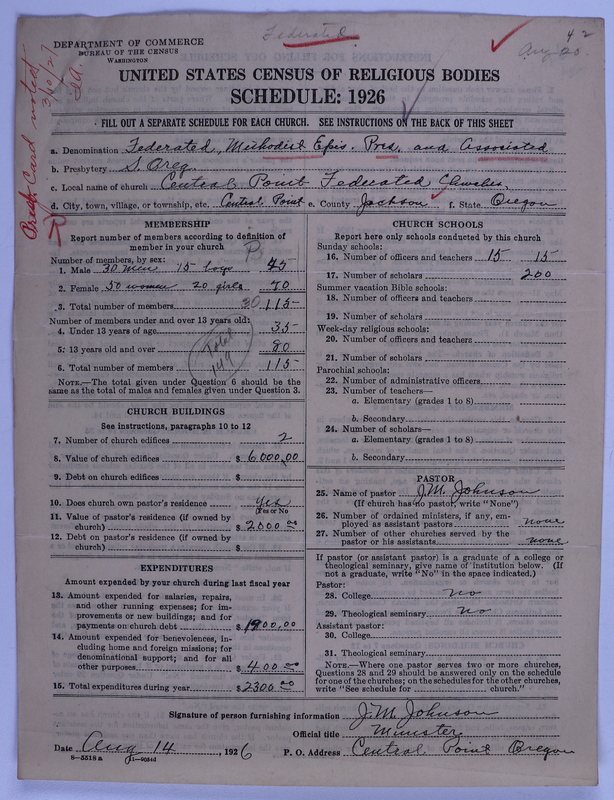 Federated
42
Aug 20
DEPARTMENT OF COMMERCE
BUREAU OF THE CENSUS
WASHINGTON
Check Card noted
3/10/27
UNITED STATES CENSUS OF RELIGIOUS BODIES
SCHEDULE: 1926
FILL OUT A SEPARATE SCHEDULE FOR EACH CHURCH. SEE INSTRUCTIONS ON THE BACK OF THIS SHEET
a. Denomination Federated, Methodist Epis. Pres. and Associated
b. Presbytery S. Oreg.
c. Local name of church Central Point Federated Churches
d. City, town, village, or township, etc. Central Point e. County Jackson f. State Oregon
MEMBERSHIP
Report number of members according to definition of
member in your church
Number of members, by sex:
1. Male 30 men 15 boys 45
2. Female 50 women 20 girls 70
3. Total number of members 115
Number of members under and over 13 years old:
4. Under 13 years of age 35
5. 13 years old and over 80
6. Total number of members 115
Total 149
NOTE.—The total given under Question 6 should be
same as the total of males and females given under Question 3.
CHURCH BUILDINGS
See instructions, paragraphs 10 to 12
7. Number of church edifices 2
8. Value of church edifices $ 6.000,00
9. Debt on church edifices $
10. Does church own pastor's residence yes
(Yes or No)
11. Value of pastor's residence (if owned by
church) $ 2000 00
12. Debt on pastor's residence (if owned by
church) $
EXPENDITURES
Amount expended by your church during last fiscal year
13. Amount expended for salaries, repairs,
and other running expenses; for im-
provements or new buildings; and for
payments on church debt $ 1900,00
14. Amount expended for benevolences, in-
cluding home and foreign missions; for
denominational support; and for all
other purposes $ 400.00
15. Total expenditures during year $ 2300 00
CHURCH SCHOOLS
Report here only schools conducted by this church
Sunday schools:
16. Number of officers and teachers 15 15
17. Number of scholars 200
Summer vacation Bible schools:
18. Number of officers and teachers
19. Number of scholars
Week-day religious schools:
20. Number of officers and teachers
21. Number of scholars
Parochial schools:
22. Number of administrative officers
23. Number of teachers—
a. Elementary (grades 1 to 8)
b. Secondary
24. Number of scholars—
a. Elementary (grades 1 to 8)
b. Secondary
PASTOR
25. Name of pastor J.M. Johnson
(If church has no pastor, write "None")
26. Number of ordained ministers, if any, em-
ployed as assistant pastors none
27. Number of other churches served by the
pastor or his assistants none
If pastor (or assistant pastor) is a graduate of a college or
theological seminary, give name of institution below. (If
not a graduate, write "No" in the space indicated.)
Pastor:
28. College no
29. Theological seminary no
Assistant pastor:
30. College
31. Theological seminary
NOTE.—Where one pastor serves two or more churches,
Questions 28 and 29 should be answered only on the schedule
for one of the churches; on the schedules for the other churches,
write "See schedule for church."
Signature of person furnishing information J.M. Johnson
Official title Minister
Date Aug 14, 1926 P. O. Address Central Point Oregon
8—5518 a